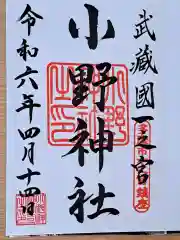 武蔵國一之宮
小野神社
令和六年四月十四日